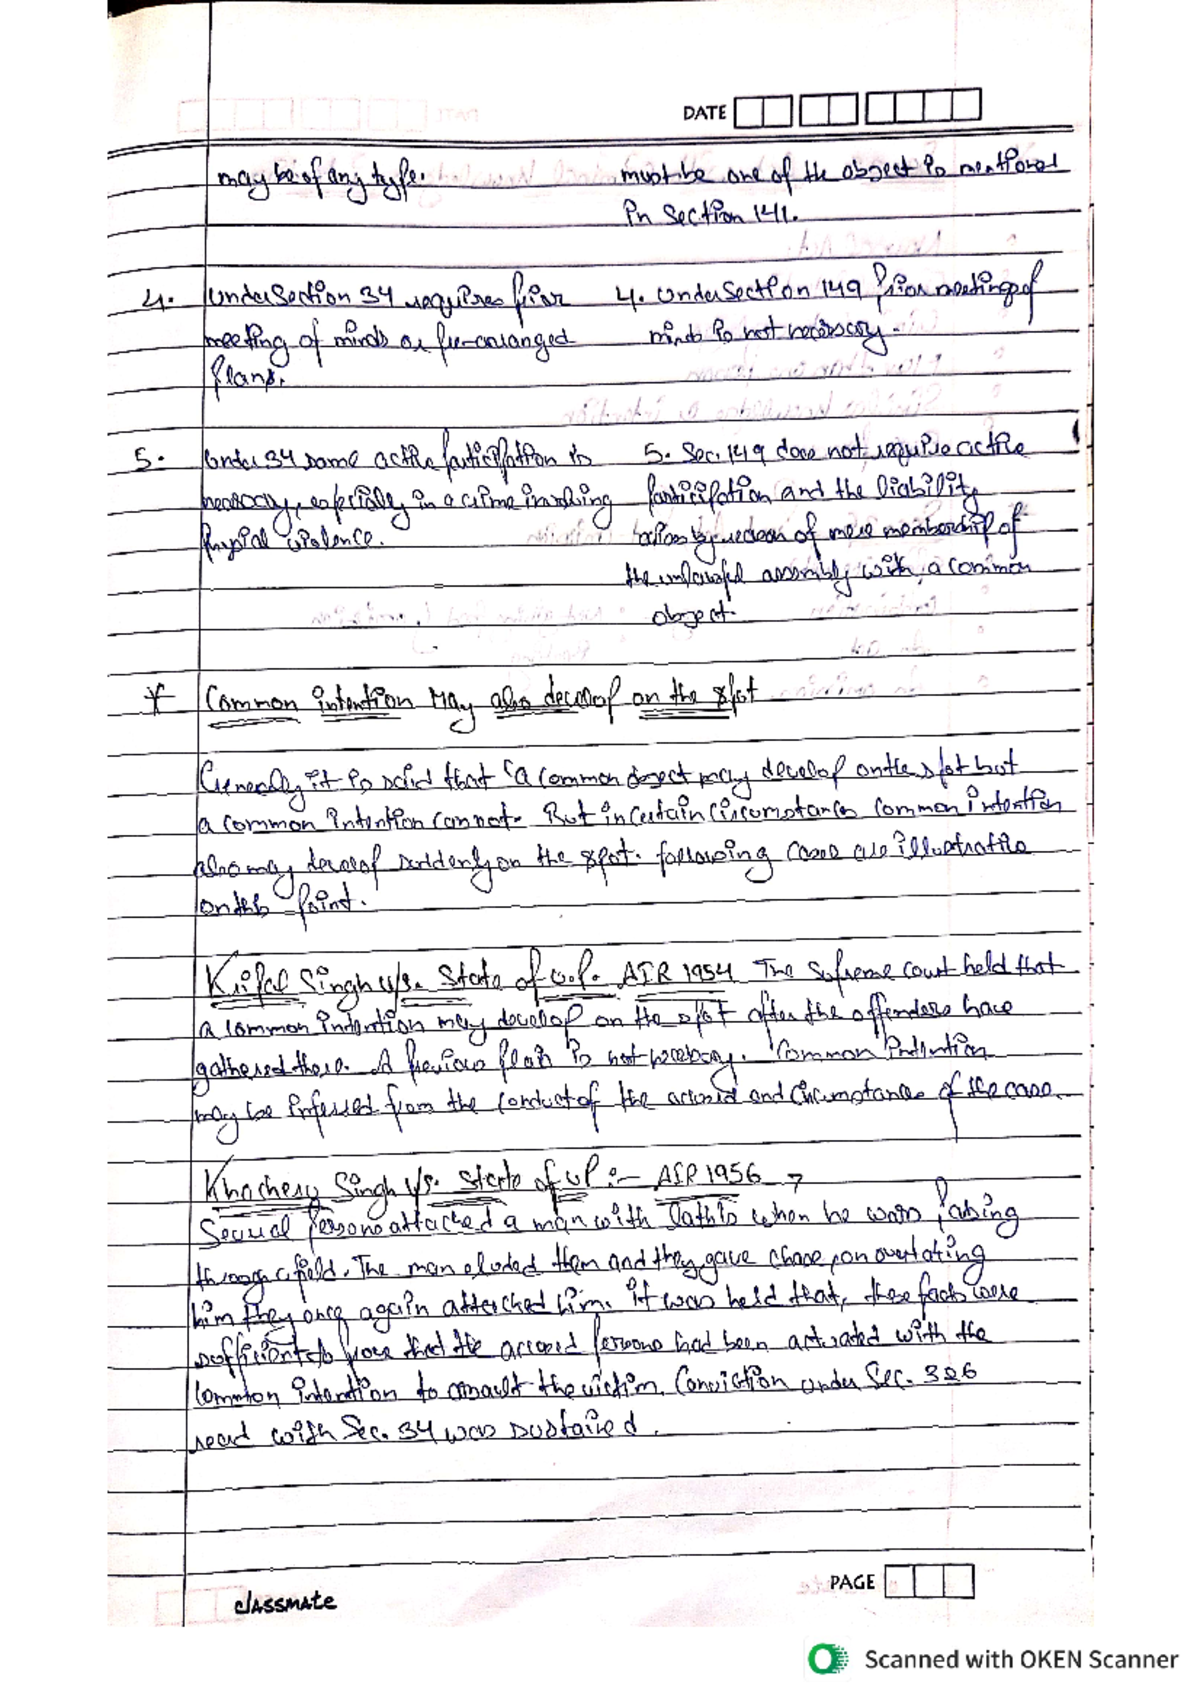 DATE
may be of any type.
must be one of the object is mentioned
in section 141.
4. Under Section 34 requires prior
meeting of minds or pre-arranged
plans.
4. Under Section 149 prior meeting of
minds is not necessary.
5. Under 34 some active participation is
necessary, especially in a crime involving
physial violence.
5. Sec. 149 does not require active
participation and the liability
arises by reason of mere membership of
the unlawful assembly with a common
object.
* Common intention May also develop on the spot
Generally it is said that 'a common object may develop on the spot but
a common intention cannot. But in certain circumstances common intention
also may develop suddenly on the spot. following cases are illustrative
on this point.
Kripal Singh v/s. State of U.P. AIR 1954 The Supreme court held that
a common intention may develop on the spot after the offenders have
gathered there. A previous plan is not necessary. Common intention
may be inferred from the conduct of the accused and circumstances of the case.
Khacheru Singh v/s. State of UP :- AIR 1956
Several persons attacked a man with lathis when he was passing
through a field. The man eluded them and they gave chase, on overtaking
him they once again attacked him. it was held that, these facts were
sufficient to prove that the accused persons had been actuated with the
common intention to assault the victim. Conviction under Sec. 326
read with Sec. 34 was sustained.
classmate
PAGE
Scanned with OKEN Scanner